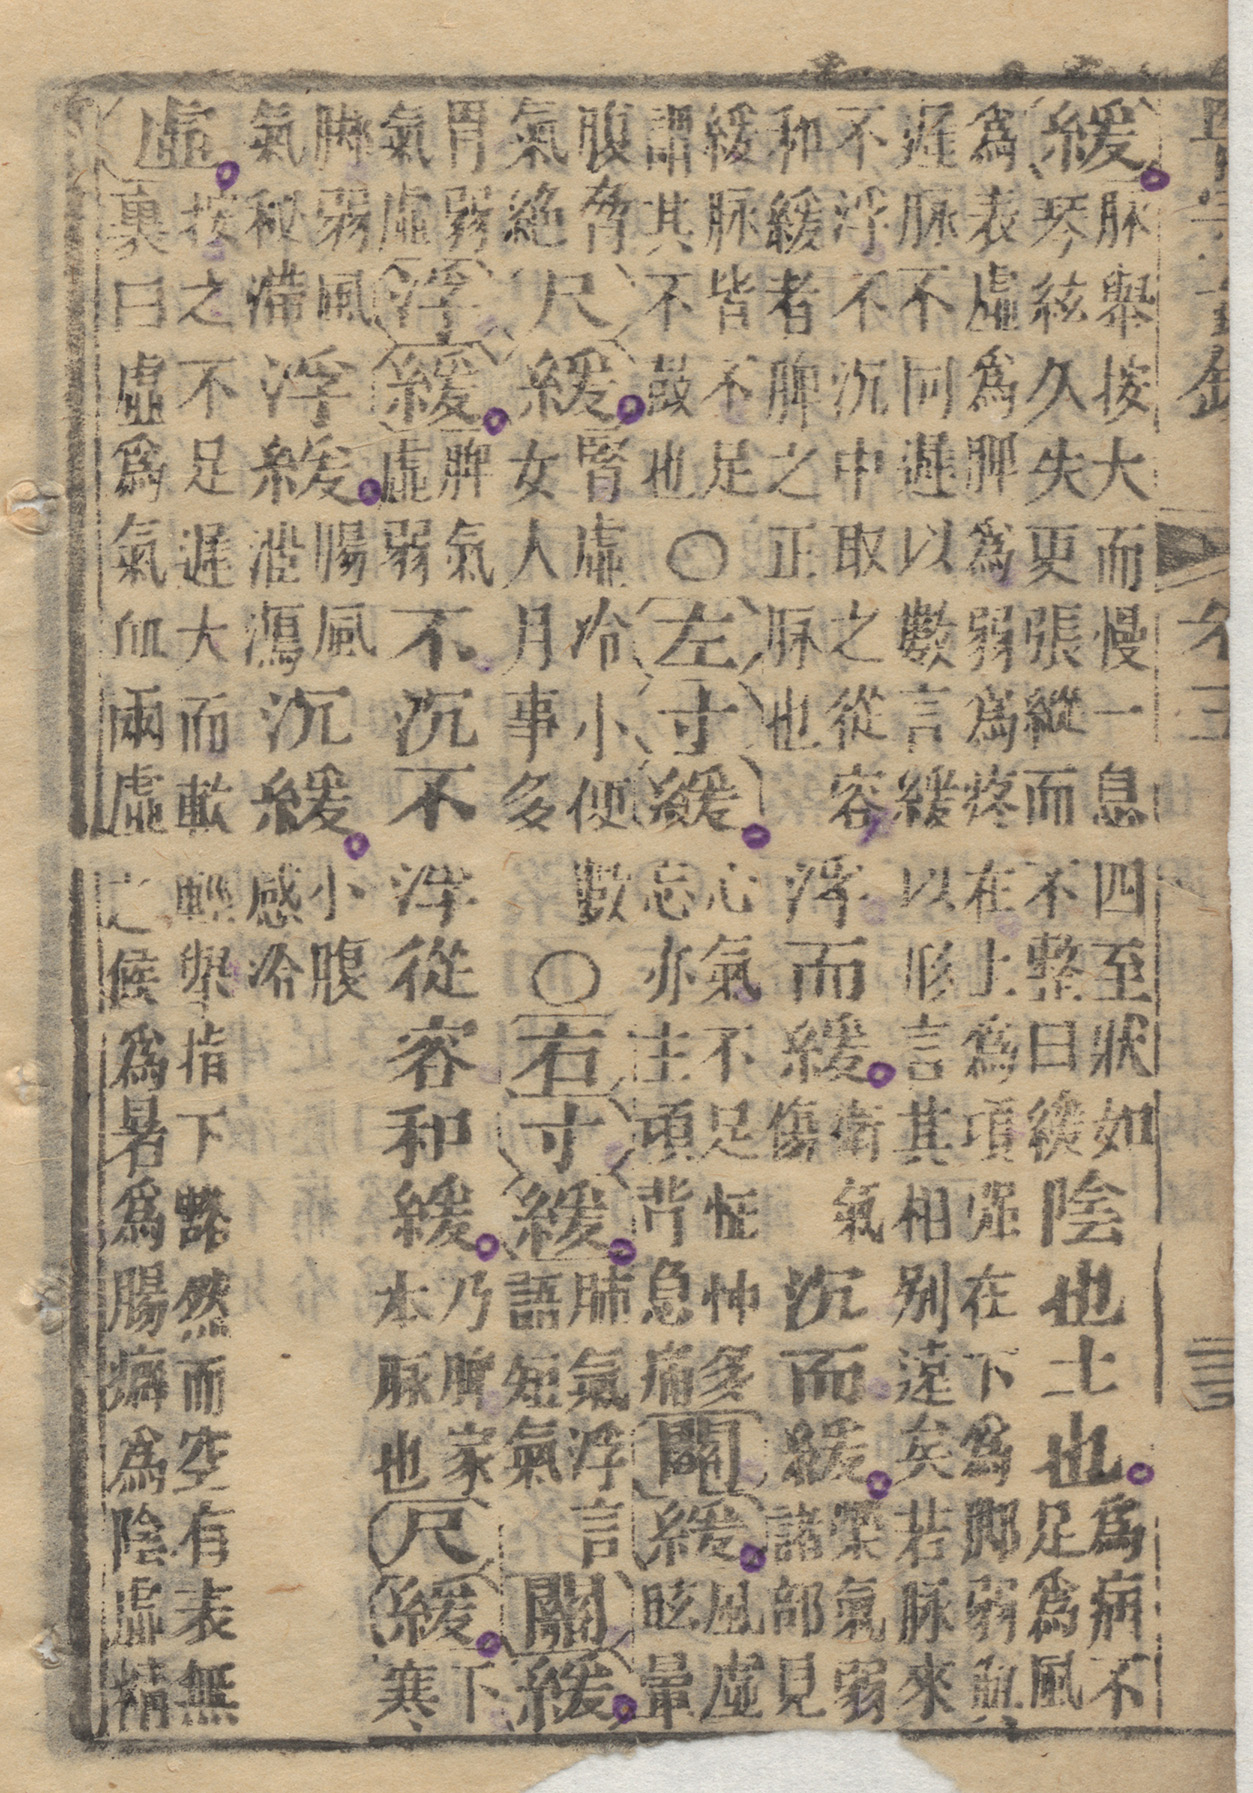 緩脉舉按大而慢一息四至狀如琴絃久失更張縱而不整曰緩陰也土也為病不足為風
為表虛為脾為弱為疼在上為項强在下為脚弱與遲脉不同遲以數言緩以形言其相別遠矣若脉來
不浮不沉中取之從容和緩者脾之正脉也浮而緩衛氣傷沉而緩榮氣弱諸部見
緩脉皆不足謂其不鼓也○左寸緩心氣不足怔忡多忘亦主項背急痛關緩風虛眩暈
腹脅氣絕尺緩腎虛冷小便數女人月事多○右寸緩肺氣浮言語短氣關緩
胃弱氣虛浮緩脾氣虛弱不沉不浮從容和緩乃脾家本脉也尺緩下寒
脚弱風氣秘滯浮緩腸風泄瀉沉緩小腹感冷
虛按之不足遲大而軟輕舉指下豁然而空有表無裏曰虛為氣血兩虛之候為暑為腸癖為陰虛精